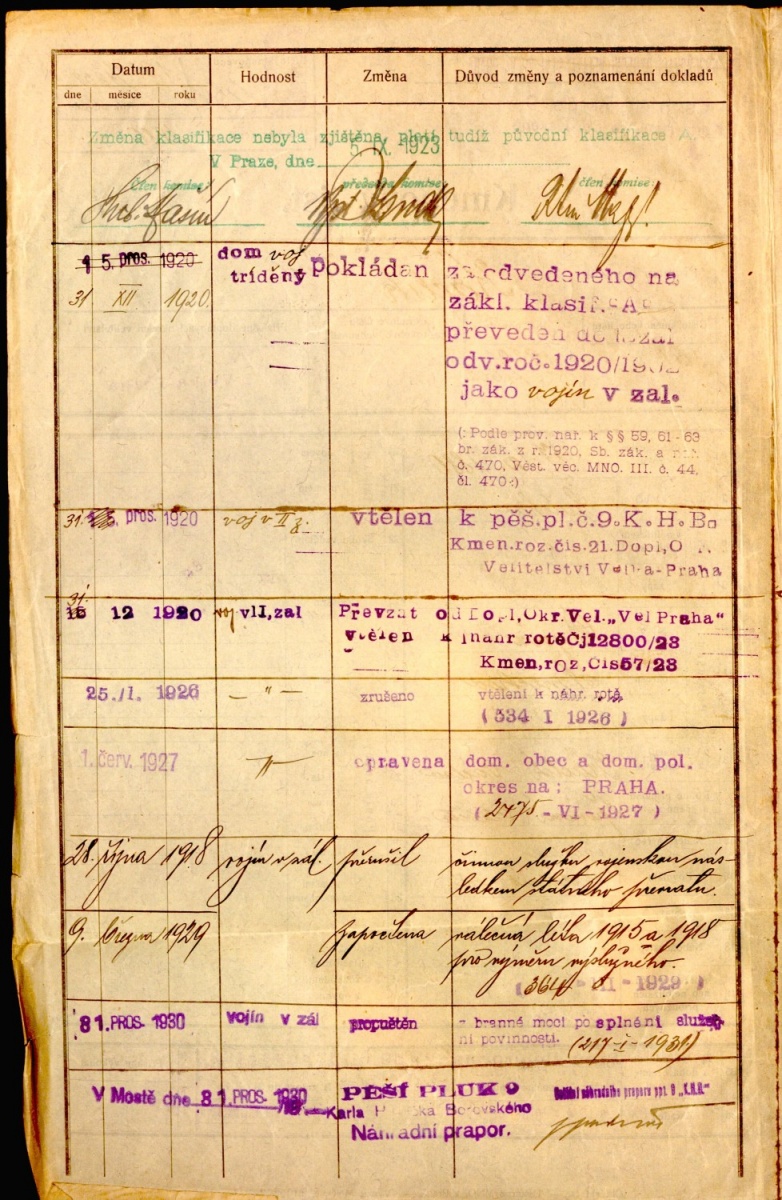 Datum
Hodnost
Změna
Důvod změny a poznamenání dokladů
dne měsíce roku
Změna klasifikace nebyla zjištěna, platí tudíž původní klasifikace A.
V Praze, dne 5 IX. 1923
člen komise: předseda komise: člen komise:
15. pros. 1920
31 XII 1920.
dom voj
tříděný
pokládan
za odvedeného na
zákl. klasif. "A"
převeden do
odv.roč.1920/
jako vojín v zal.
(: Podle prov. nař. k §§ 59, 61-63
br. zák. z r. 1920, Sb. zák. a
č. 470, Věst. věc. MNO. III. č. 44,
čl. 470:)
31. pros. 1920
voj v II z.
vtělen
k pěš.pl.č.9.K.H.B.
Kmen.roz.čis.21.Dopl,O
Velitelství Velká-Praha
31.
15 12 1920
voj vII,zal
Převzat od Dopl,Okr.Vel.„Vel Praha“
vtělen k náhr rotě Čj12800/23
Kmen,roz,čis57/23
25./I. 1926
— " —
zrušeno
vtělení k náhr. rotě
(534 I 1926)
1. červ. 1927
"
opravena
dom. obec a dom. pol.
okres na: PRAHA.
(2475 - VI - 1927)
28. října 1918
vojín v zál.
přerušil
činnou službu vojenskou nás-
ledkem státního převratu.
9. března 1929
započtena
válečná léta 1915 a 1918
pro výměru výslužného.
(364 - II - 1929)
31. PROS. 1930
vojín v zál
propuštěn
z branné moci po splnění služeb
ní povinnosti. (217-I-1931)
V Mostě dne 31. PROS. 1930
PĚŠÍ PLUK 9
Karla Havlíčka Borovského
Náhradní prapor.
náhradního praporu pp. 9 „K.H.B.“